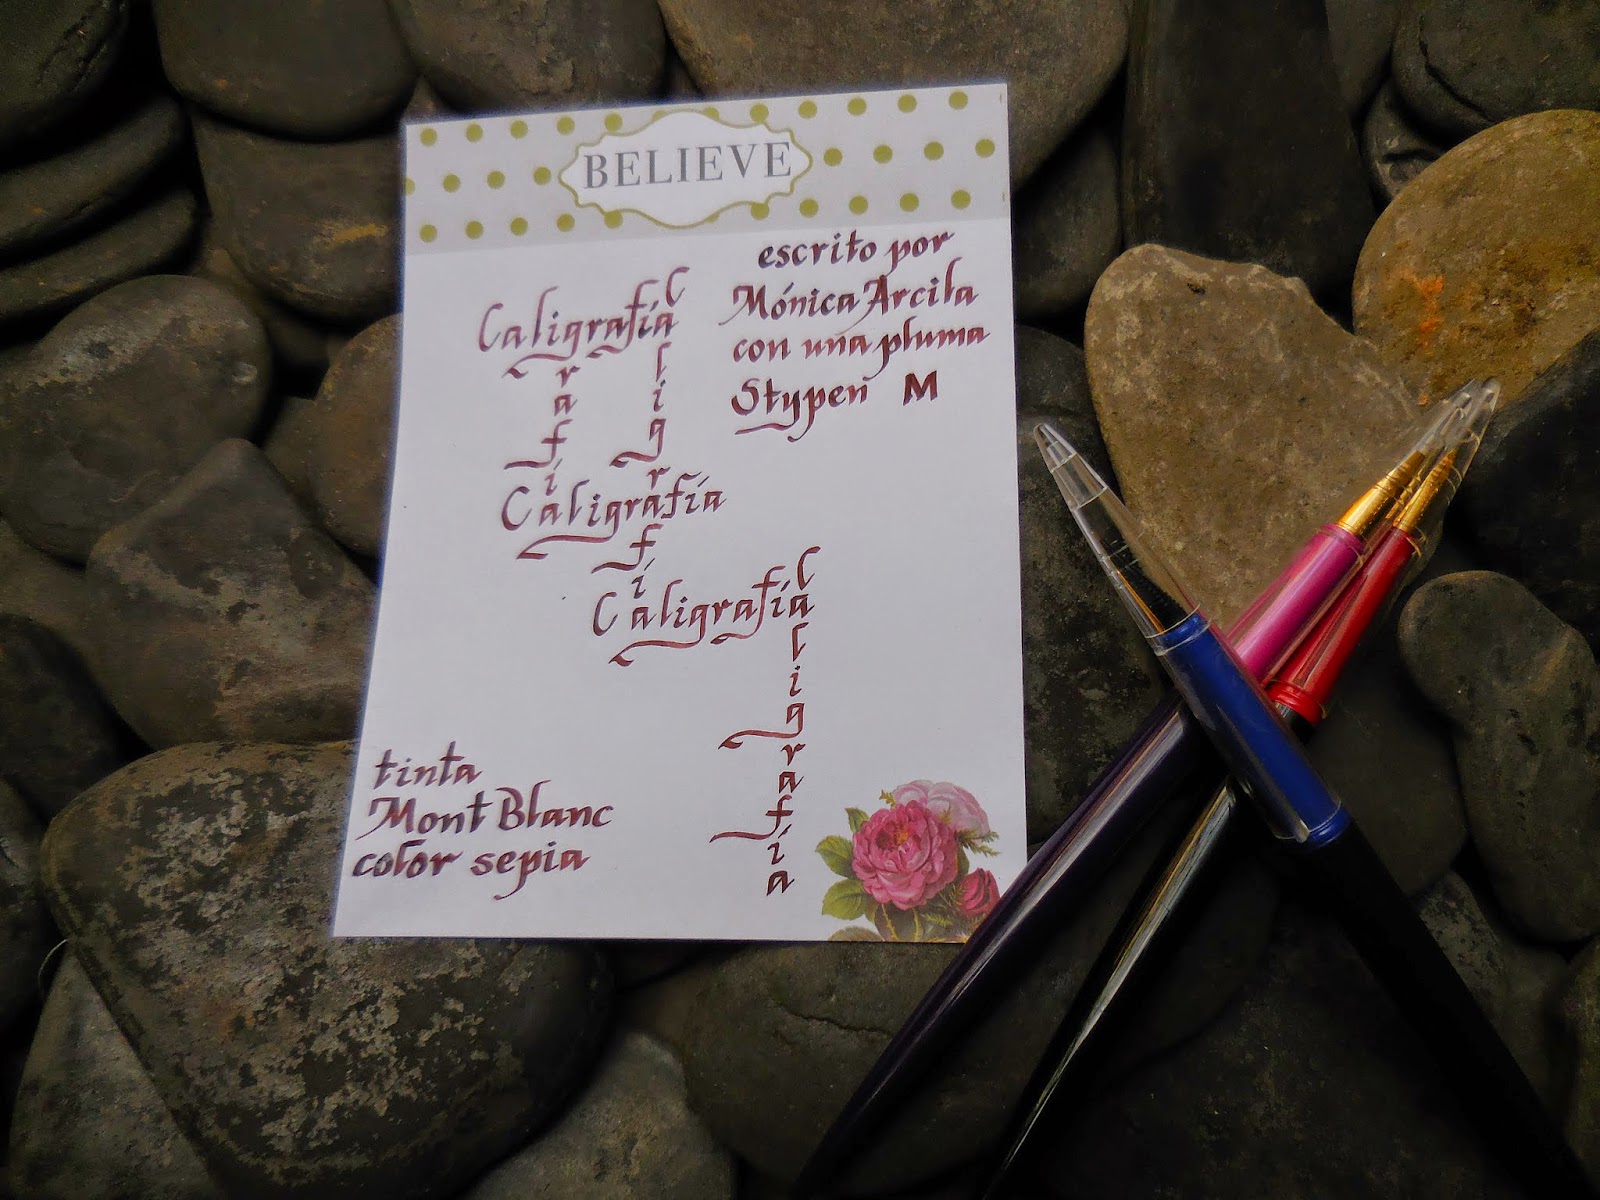 BELIEVE
escrito por
Mónica Arcila
con una pluma
Stypen M
Caligrafía
grafía
Caligrafía
Caligrafía
Caligrafía
Caligrafía
tinta
Mont Blanc
color sepia